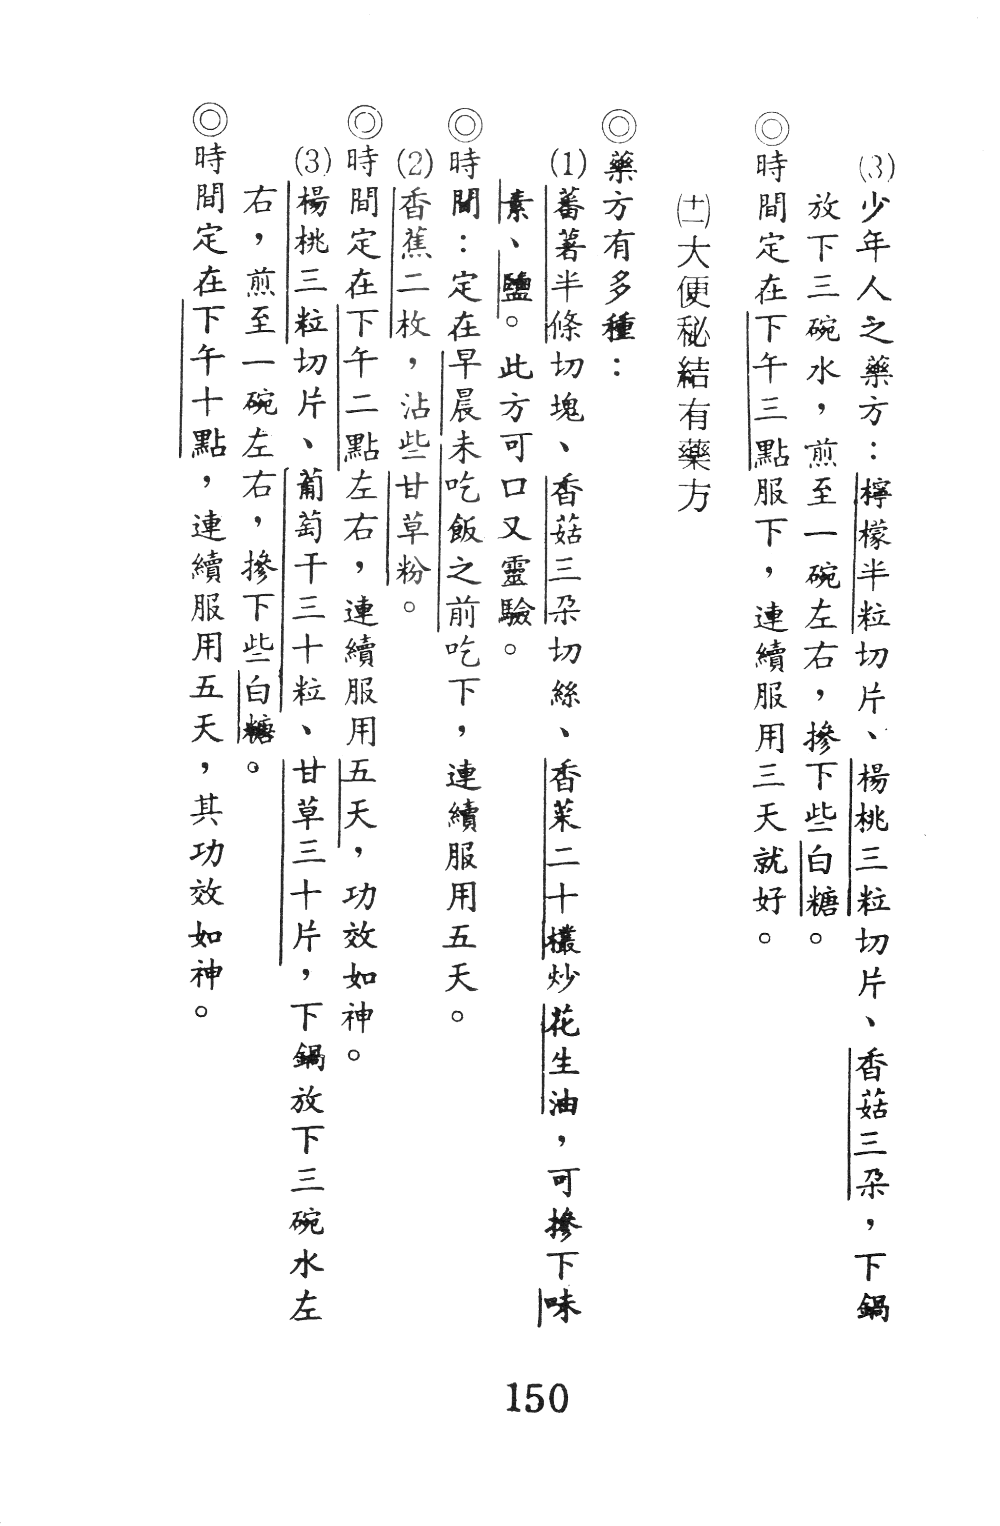 (3)少年人之藥方：檸檬半粒切片、楊桃三粒切片、香菇三朶，下鍋
放下三碗水，煎至一碗左右，摻下些白糖。
◎時間定在下午三點服下，連續服用三天就好。
㈩二大便秘結有藥方
◎藥方有多種：
(1)蕃薯半條切塊、香菇三朶切絲、香菜二十欉炒花生油，可摻下味
素、鹽。此方可口又靈驗。
◎時間：定在早晨未吃飯之前吃下，連續服用五天。
(2)香蕉二枚，沾些甘草粉。
◎時間定在下午二點左右，連續服用五天，功效如神。
(3)楊桃三粒切片、葡萄干三十粒、甘草三十片，下鍋放下三碗水左
右，煎至一碗左右，摻下些白糖。
◎時間定在下午十點，連續服用五天，其功效如神。
150